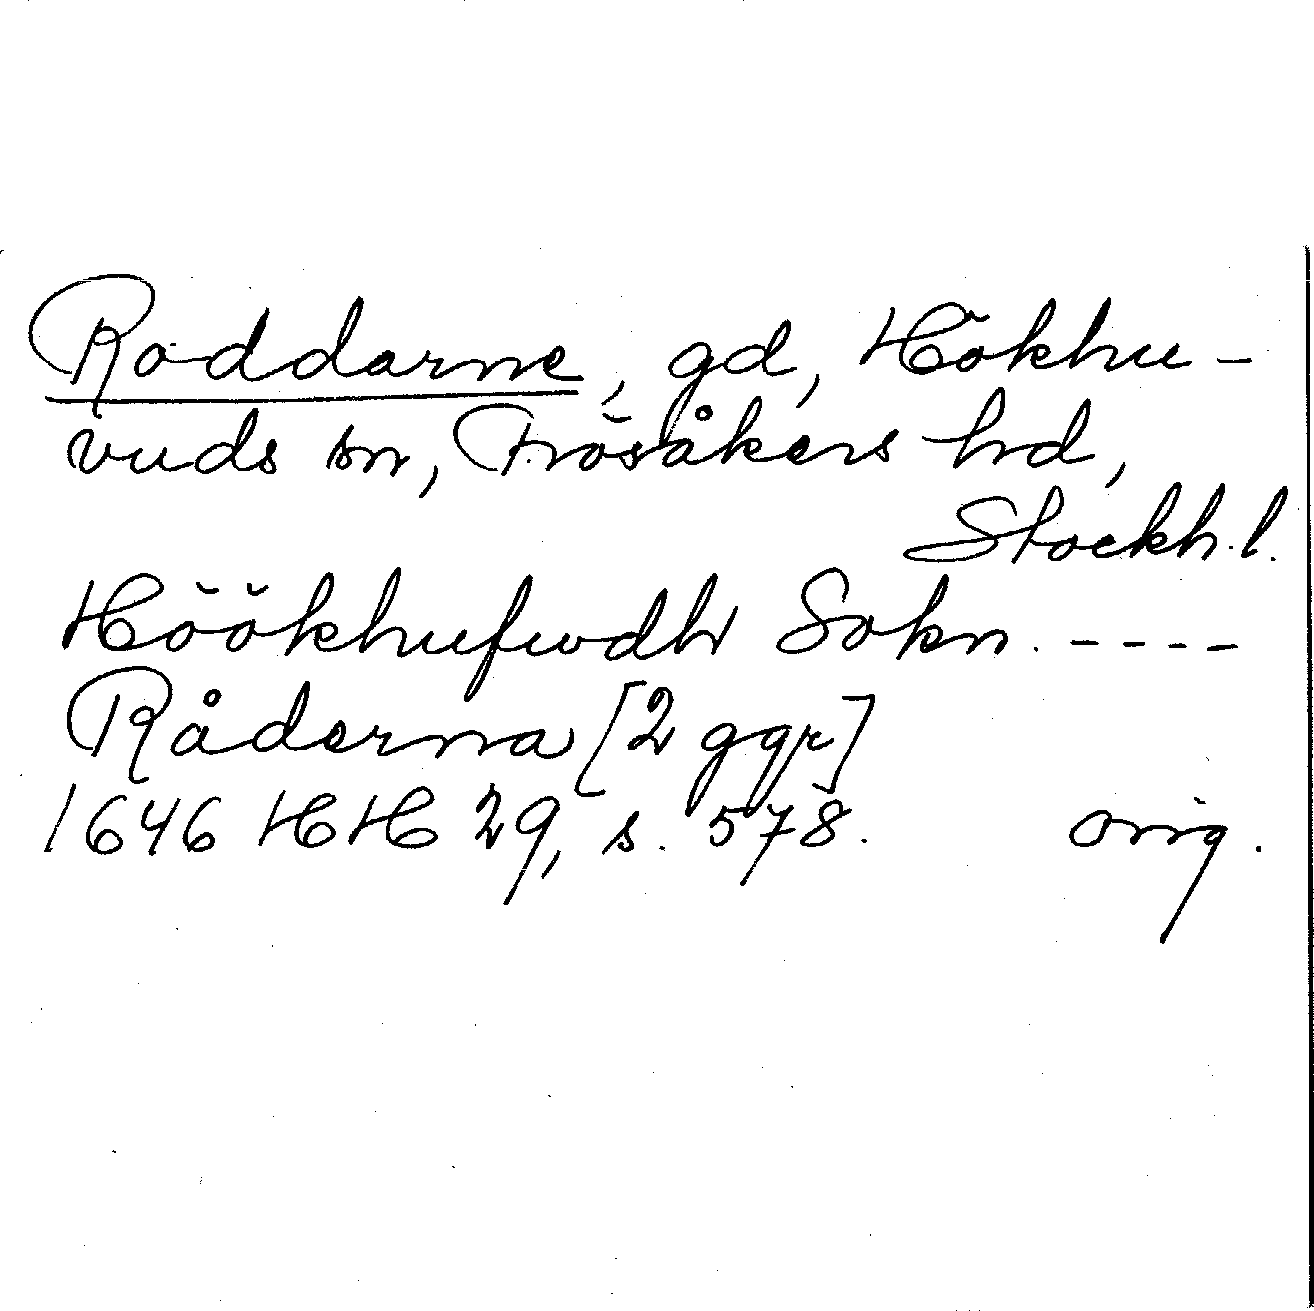 Roddarne, gd, Hökhu-
vuds sn, Frösåkers hd,
Stockh.l.
Höökhufwdh Sokn. ----
Råderna [2 ggr]
1646 HH 29, s. 578. orig.